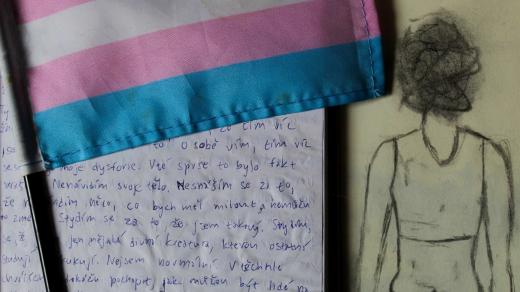 co čím víc
o sobě vím, tím víc
moje dysforie. V té sprše to bylo fakt
Nenávidím svoje tělo. Nesnáším se za to,
že něco, co bych měl milovat, a nemůžu
Stydím se za to že jsem takový. Stydím
se, že jsem nějaká divná kreatura, kterou ostatní
studují Nejsem normální. V těchhle
pochopit, jak můžou být lidé na